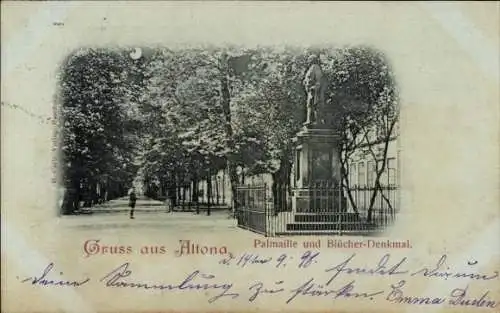 Gruss aus Altona
Palmaille und Blücher-Denkmal.
d. 14ten 9. 98. findet Dirum
deine Sammlung zu stärken. Emma Duden